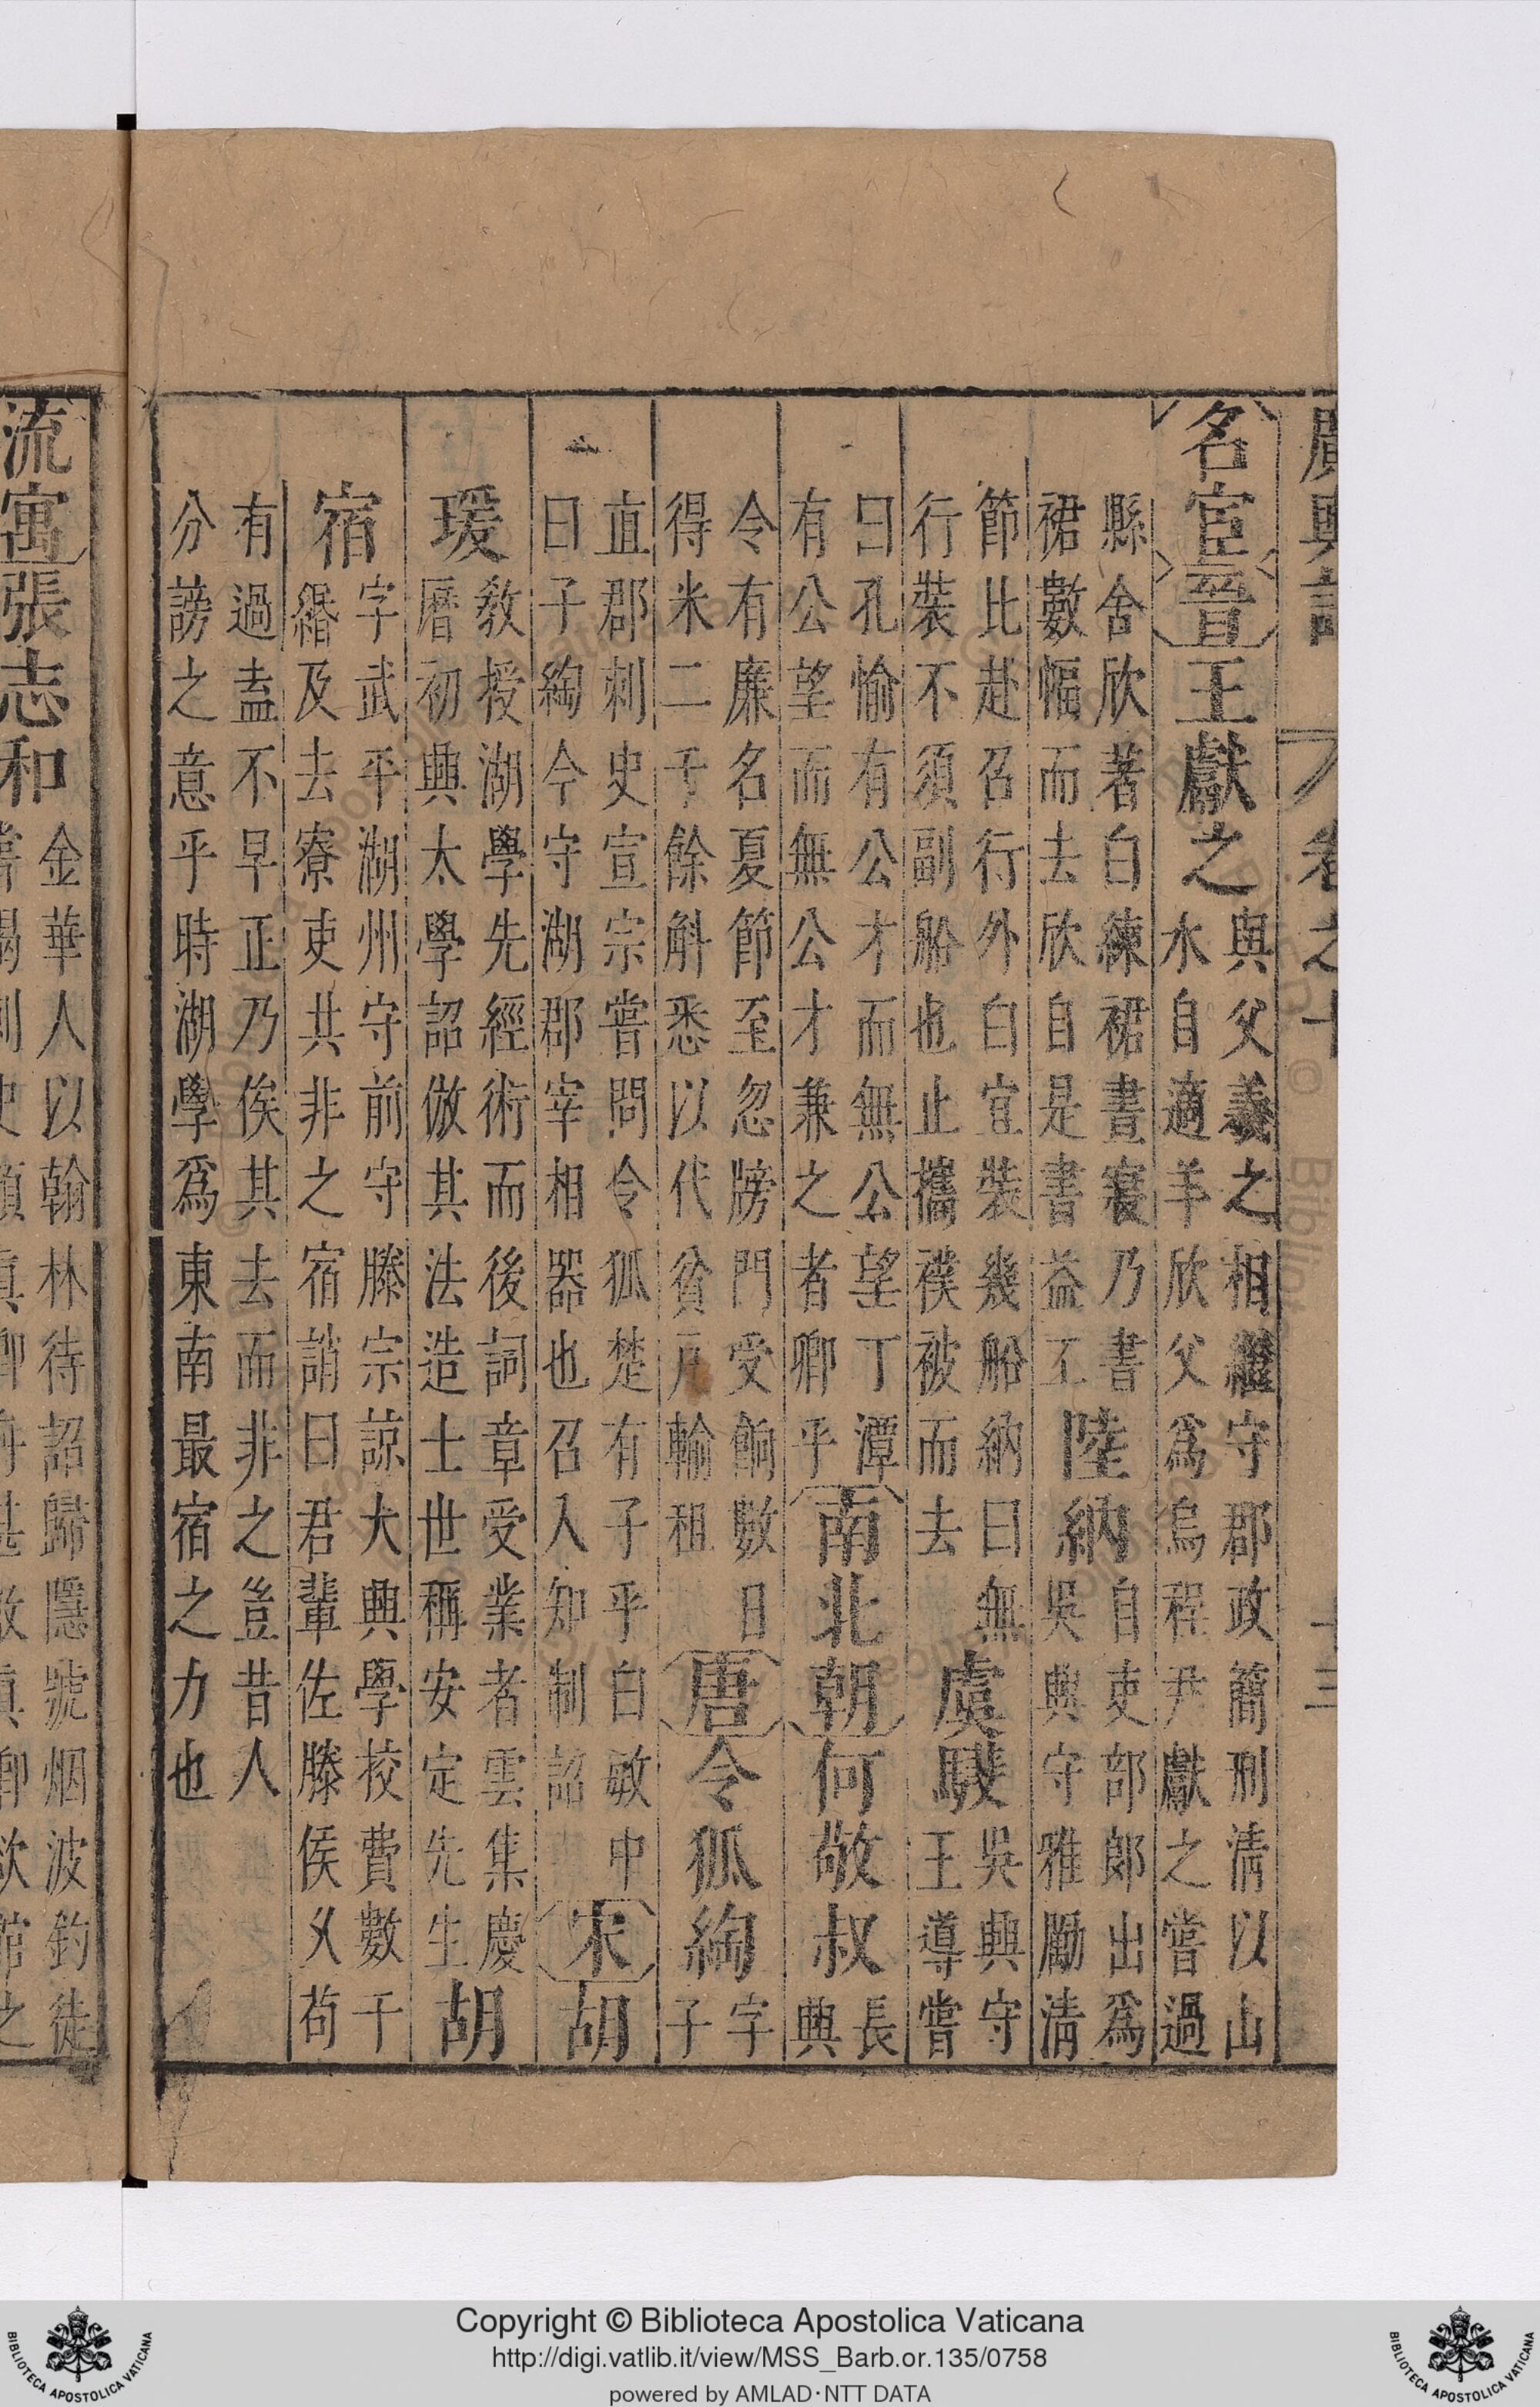 廣輿記 卷之十 十三
名宦 晉 王獻之
與父羲之相繼守郡政簡刑清以山
水自適羊欣父爲烏程尹獻之嘗過
縣舍欣著白練裙晝寢乃書
裙數幅而去欣自是書益工
陸納
自吏部郎出爲
吳興守雅勵清
節比赴召行外白宜裝幾船納曰無
行裝不須副船也止攜襆被而去
虞𩦎
吳興守
王導嘗
曰孔愉有公才而無公望丁潭
有公望而無公才兼之者卿乎
南北朝 何敬叔
長
興
令有廉名夏節至忽牓門受餉數日
得米二千餘斛悉以代貧戶輸租
唐 令狐綯
字
子
直郡刺史宣宗嘗問令狐楚有子乎白敏中
曰子綯今守湖郡宰相器也召入知制誥
宋 胡
瑗
教授湖學先經術而後詞章受業者雲集慶
曆初興太學詔倣其法造士世稱安定先生
胡
宿
字武平湖州守前守滕宗諒大興學校費數千
緡及去寮吏共非之宿誚曰君輩佐滕侯久苟
有過盍不早正乃俟其去而非之豈昔人
分謗之意乎時湖學爲東南最宿之力也
流寓 張志和
金華人以翰林待詔歸隱號烟波釣徒
Copyright © Biblioteca Apostolica Vaticana
http://digi.vatlib.it/view/MSS_Barb.or.135/0758
powered by AMLAD·NTT DATA
BIBLIOTECA APOSTOLICA VATICANA
BIBLIOTECA APOSTOLICA VATICANA